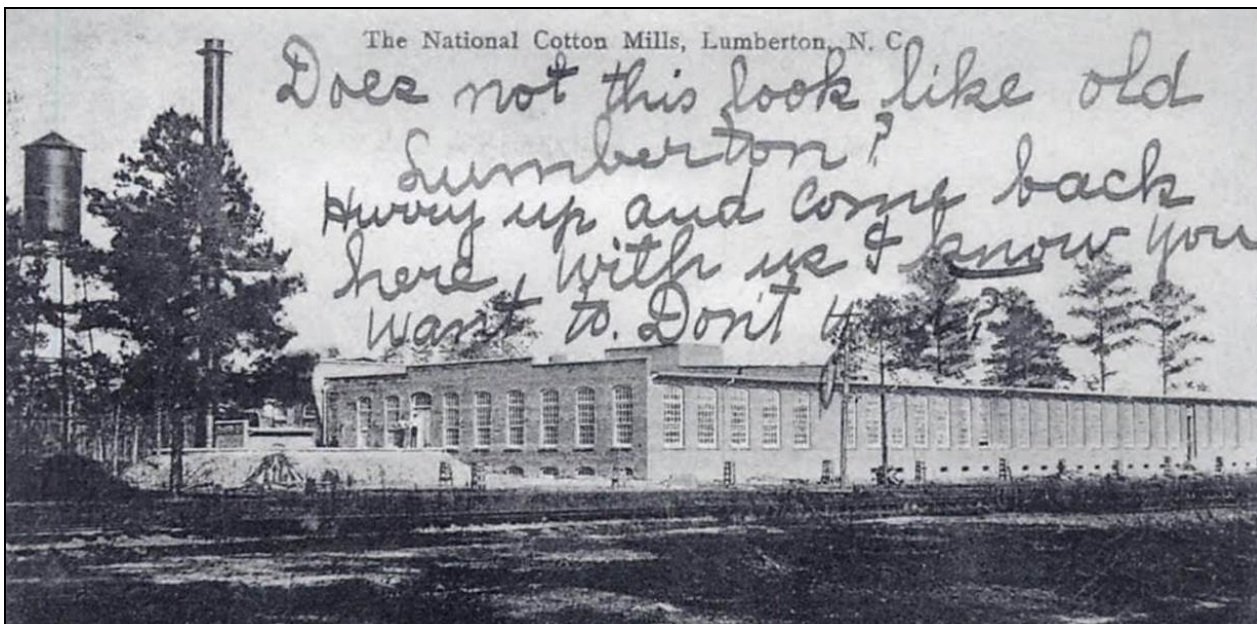 The National Cotton Mills, Lumberton, N. C.
Does not this look like old
Lumberton?
Hurry up and come back
here, with us I know you
want to. Don't you?